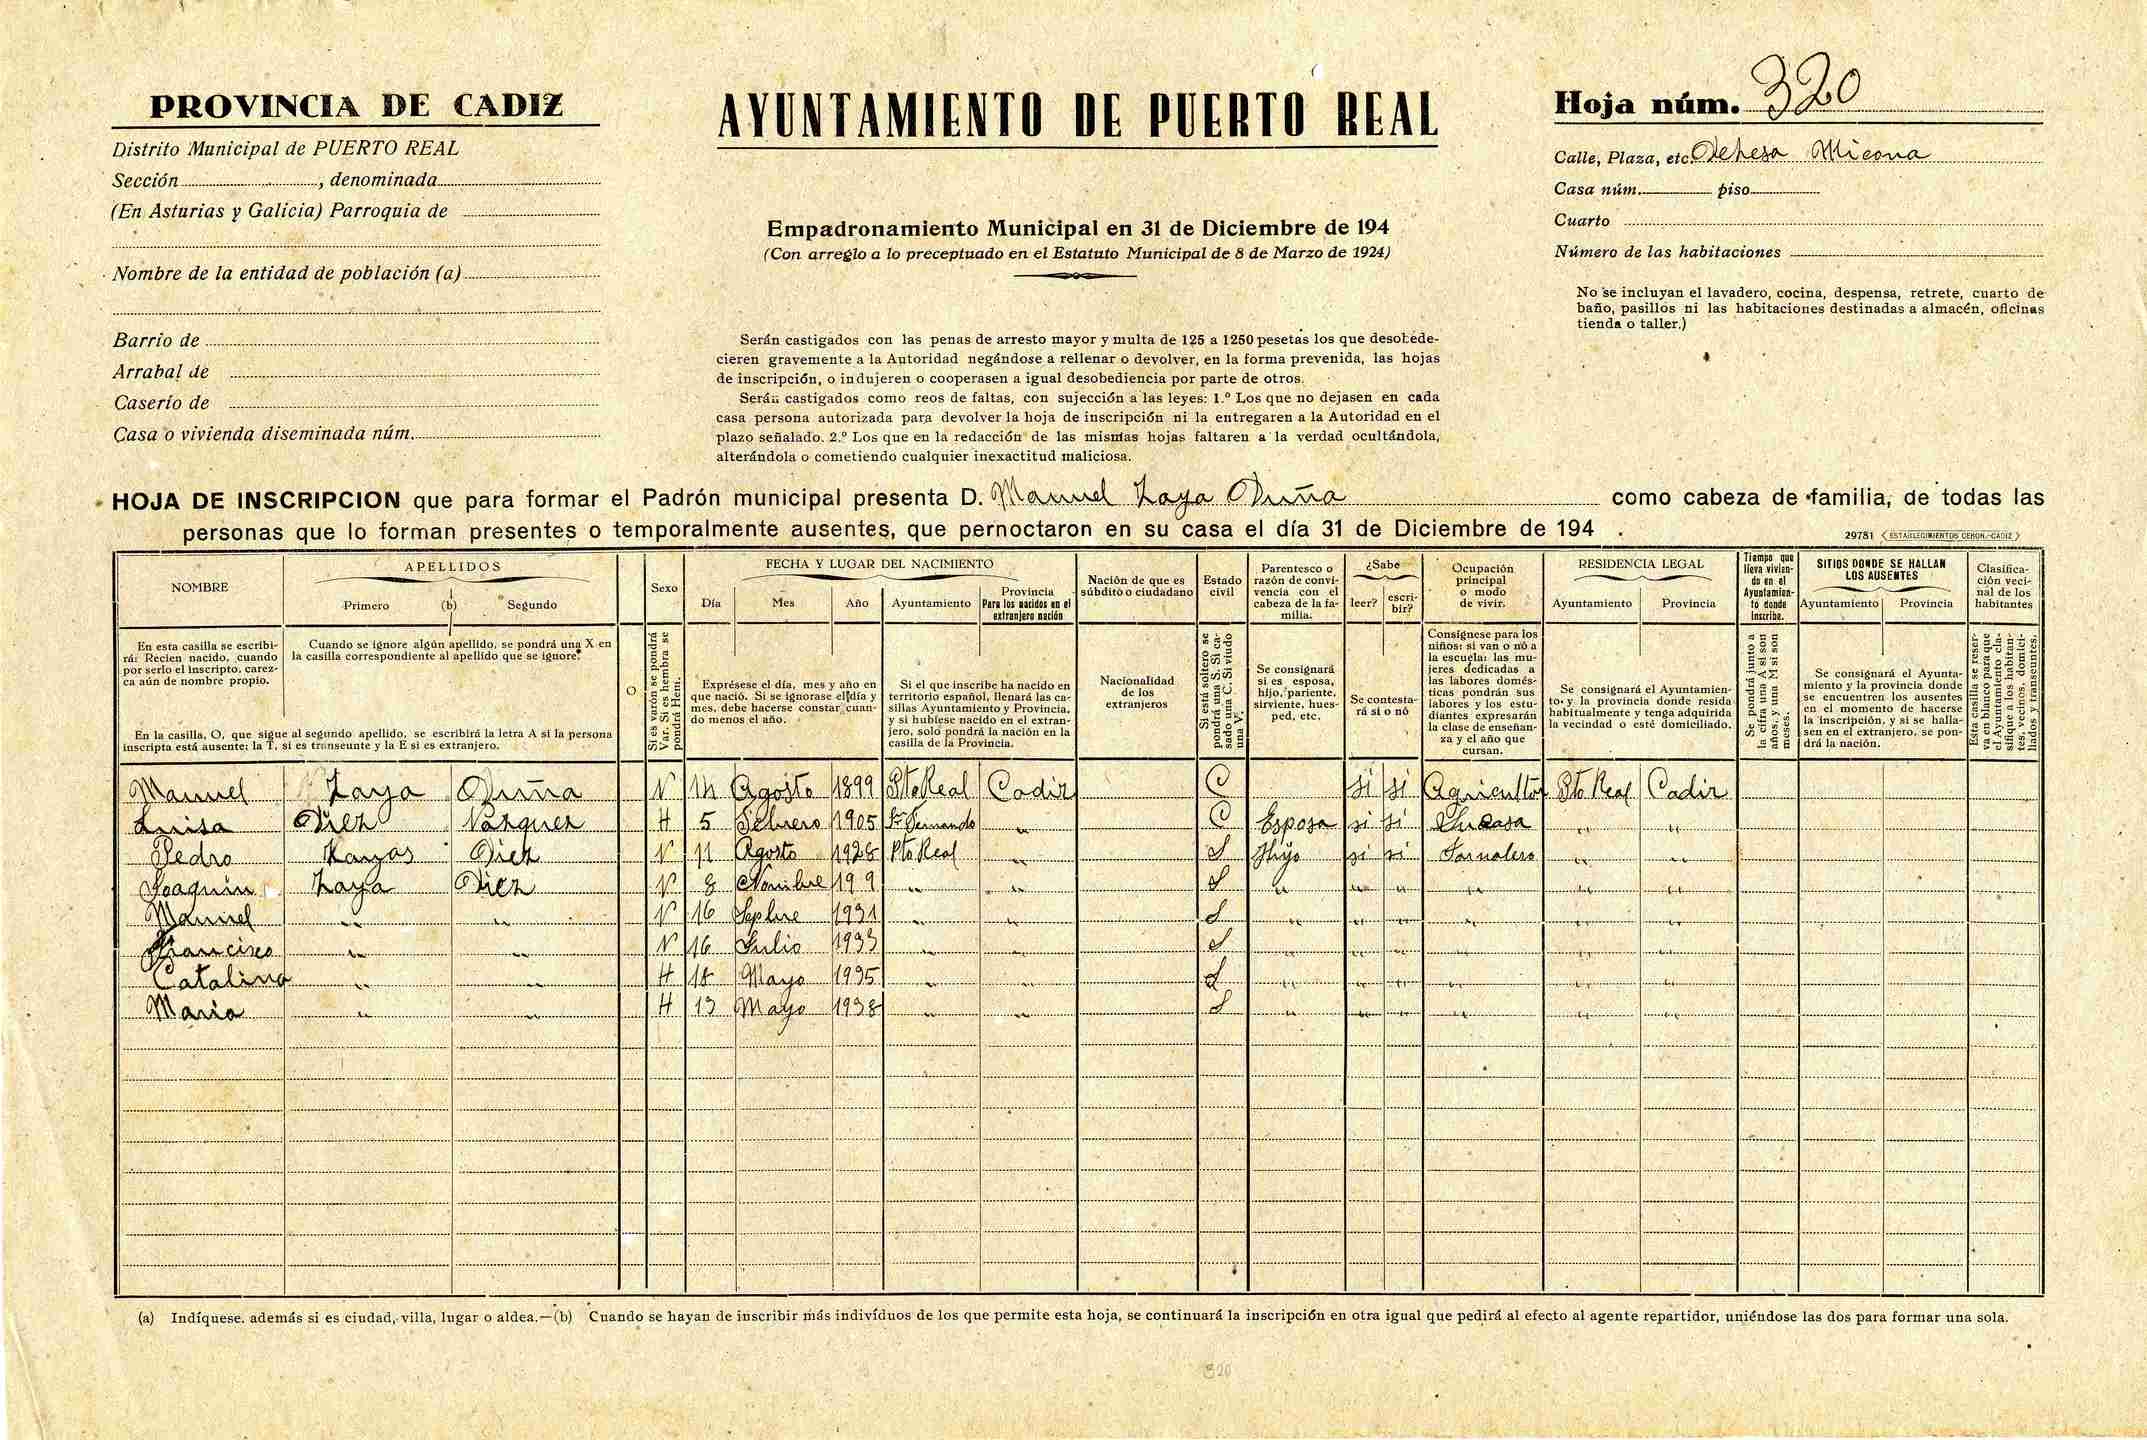 PROVINCIA DE CADIZ
Distrito Municipal de PUERTO REAL
Sección , denominada
(En Asturias y Galicia) Parroquia de
Nombre de la entidad de población (a)
Barrio de
Arrabal de
Caserío de
Casa o vivienda diseminada núm.
AYUNTAMIENTO DE PUERTO REAL
Empadronamiento Municipal en 31 de Diciembre de 194
(Con arreglo a lo preceptuado en el Estatuto Municipal de 8 de Marzo de 1924)
Serán castigados con las penas de arresto mayor y multa de 125 a 1250 pesetas los que desobede-
cieren gravemente a la Autoridad negándose a rellenar o devolver, en la forma prevenida, las hojas
de inscripción, o indujeren o cooperasen a igual desobediencia por parte de otros.
Serán castigados como reos de faltas, con sujección a las leyes: 1.º Los que no dejasen en cada
casa persona autorizada para devolver la hoja de inscripción ni la entregaren a la Autoridad en el
plazo señalado. 2.º Los que en la redacción de las mismas hojas faltaren a la verdad ocultándola,
alterándola o cometiendo cualquier inexactitud maliciosa.
Hoja núm. 320
Calle, Plaza, etc. Dehesa Micona
Casa núm. piso
Cuarto
Número de las habitaciones
No se incluyan el lavadero, cocina, despensa, retrete, cuarto de
baño, pasillos ni las habitaciones destinadas a almacén, oficinas
tienda o taller.)
HOJA DE INSCRIPCION que para formar el Padrón municipal presenta D. Manuel Zaya Oruña como cabeza de familia, de todas las
personas que lo forman presentes o temporalmente ausentes, que pernoctaron en su casa el día 31 de Diciembre de 194 .
29781 ESTABLECIMIENTOS CERON.-CADIZ
NOMBRE
APELLIDOS
Primero (b) Segundo
O
Sexo
FECHA Y LUGAR DEL NACIMIENTO
Día Mes Año Ayuntamiento
Provincia
Para los nacidos en el
extranjero nación
Nación de que es
súbdito o ciudadano
Estado
civil
Parentesco o
razón de convi-
vencia con el
cabeza de la fa-
milia.
¿Sabe
leer? escri-
bir?
Ocupación
principal
o modo
de vivir.
RESIDENCIA LEGAL
Ayuntamiento Provincia
Tiempo que
lleva vivien-
do en el
Ayuntamien-
to donde
inscribe.
SITIOS DONDE SE HALLAN
LOS AUSENTES
Ayuntamiento Provincia
Clasifica-
ción veci-
nal de los
habitantes
En esta casilla se escribi-
rá: Recien nacido, cuando
por serlo el inscripto, carez-
ca aún de nombre propio.
Cuando se ignore algún apellido, se pondrá una X en
la casilla correspondiente al apellido que se ignore.
En la casilla, O, que sigue al segundo apellido, se escribirá la letra A si la persona
inscripta está ausente; la T, si es transeunte y la E si es extranjero.
Si es varón se pondrá
Var. Si es hembra se
pondrá Hem.
Exprésese el día, mes y año en
que nació. Si se ignorase el día y
mes, debe hacerse constar cuan-
do menos el año.
Si el que inscribe ha nacido en
territorio español, llenará las ca-
sillas Ayuntamiento y Provincia,
y si hubiese nacido en el extran-
jero, solo pondrá la nación en la
casilla de la Provincia.
Nacionalidad
de los
extranjeros
Si está soltero se
pondrá una S. Si ca-
sado una C. Si viudo
una V.
Se consignará
si es esposa,
hijo, pariente,
sirviente, hues-
ped, etc.
Se contesta-
rá si o nó
Consígnese para los
niños: si van o nó a
la escuela: las mu-
jeres dedicadas a
las labores domés-
ticas pondrán sus
labores y los estu-
diantes expresarán
la clase de enseñan-
za y el año que
cursan.
Se consignará el Ayuntamien-
to y la provincia donde resida
habitualmente y tenga adquirida
la vecindad o esté domiciliado.
Se pondrá junto a
la cifra una A si son
años, y una M si son
meses.
Se consignará el Ayunta-
miento y la provincia donde
se encuentren los ausentes
en el momento de hacerse
la inscripción, y si se halla-
sen en el extranjero, se pon-
drá la nación.
Esta casilla se reser-
va en blanco para que
el Ayuntamiento cla-
sifique a los habitan-
tes, vecinos, domici-
liados y transeuntes.
Manuel Zaya Oruña V 14 Agosto 1899 Pto Real Cadiz C si si Agricultor Pto Real Cadiz
Luisa Diez Vazquez H 5 Febrero 1905 Sn Fernando " C Esposa si si Su casa " "
Pedro Zayas Diez V 11 Agosto 1928 Pto Real " S Hijo si si Jornalero " "
Joaquín Zaya Diez V 8 Nombre 19 9 " " S " " " " " "
Manuel " " V 16 Sepbre 1931 " " S " " " " " "
Francisco " " V 16 Julio 1933 " " S " " " " " "
Catalina " " H 18 Mayo 1935 " " S " " " " " "
Maria " " H 13 Mayo 1938 " " S " " " " " "
(a) Indíquese. además si es ciudad, villa, lugar o aldea.—(b) Cuando se hayan de inscribir más indivíduos de los que permite esta hoja, se continuará la inscripción en otra igual que pedirá al efecto al agente repartidor, uniéndose las dos para formar una sola.
320